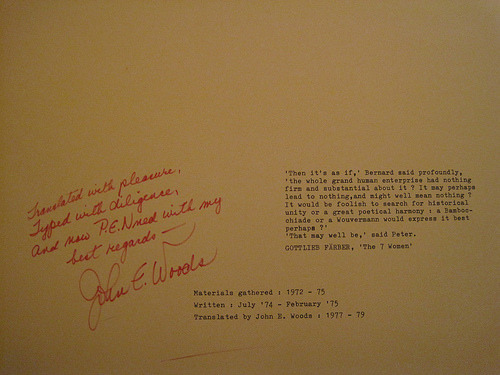 Translated with pleasure,
Typed with diligence,
And now P.E.Nned with my
best regards —
John E. Woods
'Then it's as if,' Bernard said profoundly,
'the whole grand human enterprise had nothing
firm and substantial about it ? It may perhaps
lead to nothing,and might well mean nothing ?
It would be foolish to search for historical
unity or a great poetical harmony : a Bamboc-
chiade or a Wouvermann would express it best
perhaps ?'
'That may well be,' said Peter.
GOTTLIEB FÄRBER, 'The 7 Women'
Materials gathered : 1972 - 75
Written : July '74 - February '75
Translated by John E. Woods : 1977 - 79